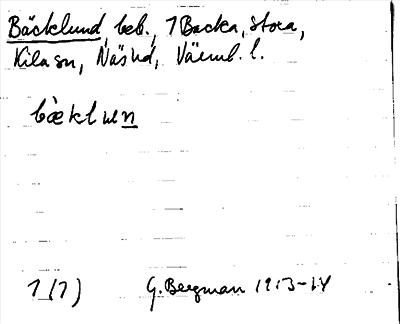 Bäcklund, beb., 1 Backa, Stora,
Kila sn, Näs hd, Värml. l.
bæ̀klun
1 (1) G. Bergman 1913-14